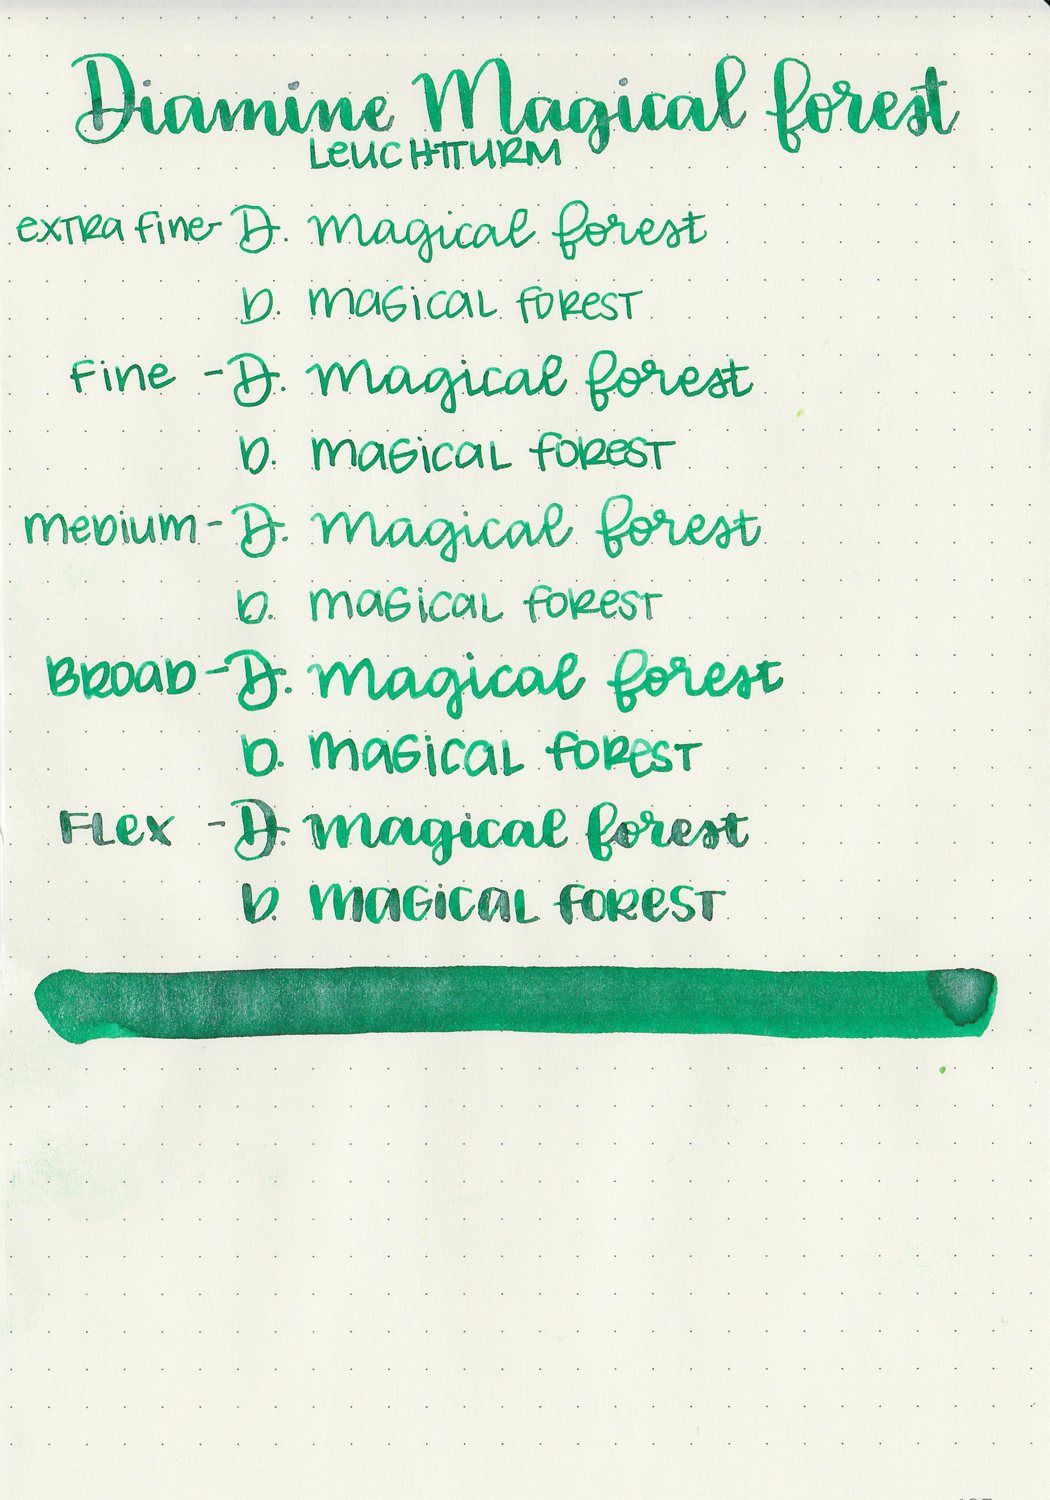 Diamine Magical forest
LEUCHTTURM
extra fine - D. Magical forest
D. MAGICAL FOREST
Fine - D. Magical forest
D. MAGICAL FOREST
Medium - D. Magical forest
D. MAGICAL FOREST
BROAD - D. Magical forest
D. MAGICAL FOREST
FLex - D. Magical forest
D. MAGICAL FOREST